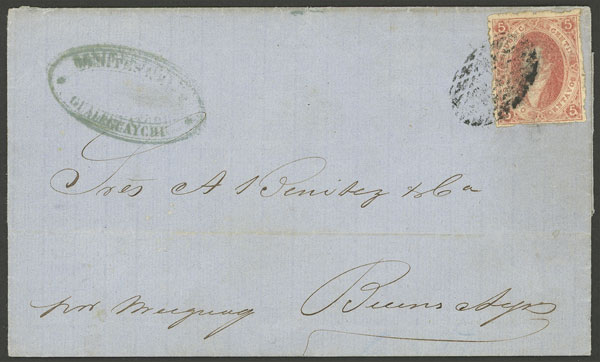 GUALEGUAYCHU
5 CENTAVOS 5
5 5
Srës A Benitez & Ca
por Uruguay Buens Ayres